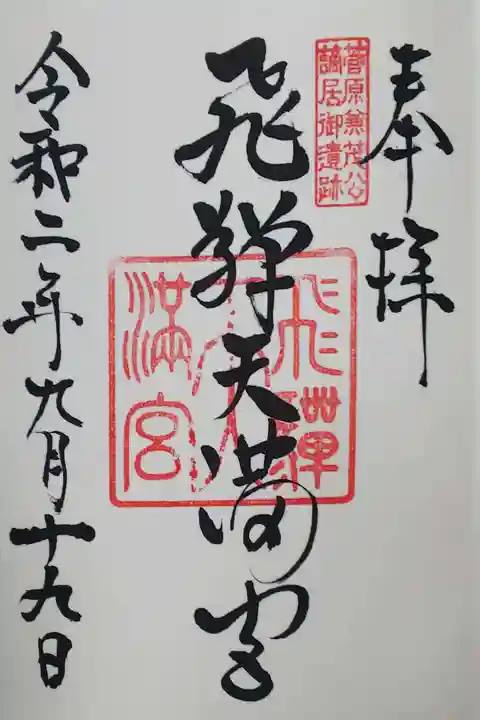 奉拝
菅原兼茂公
謫居御遺跡
飛騨天満宮
飛驒天満宮
令和二年九月十九日